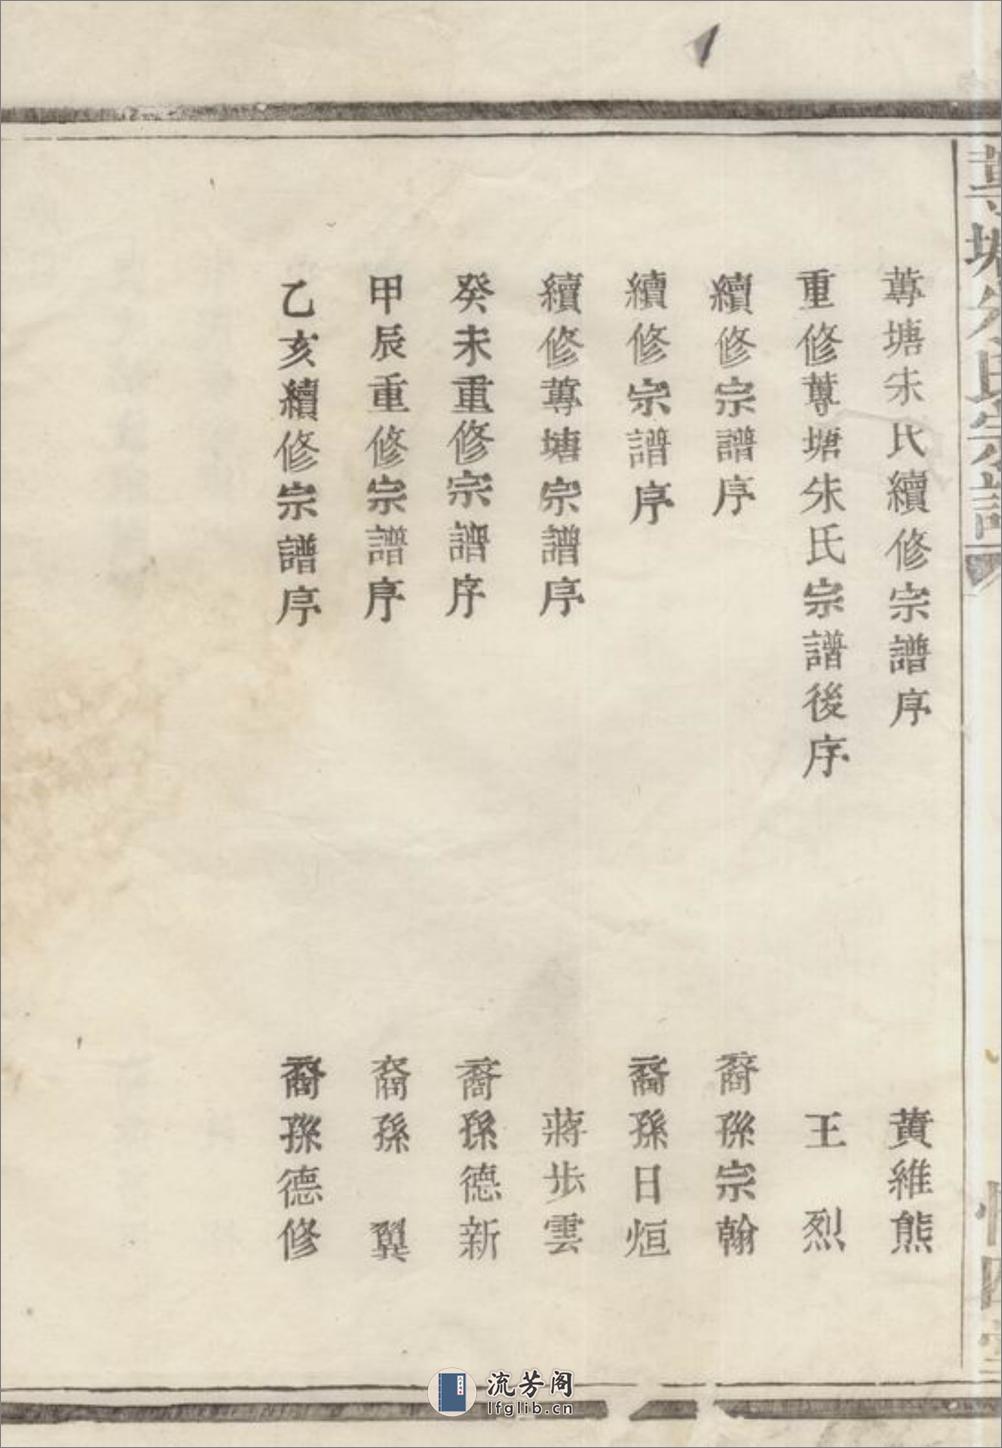 蓴塘朱氏宗譜
蓴塘朱氏續修宗譜序 黃維熊
重修蓴塘朱氏宗譜後序 王烈
續修宗譜序 裔孫宗翰
續修宗譜序 裔孫日烜
續修蓴塘宗譜序 蔣步雲
癸未重修宗譜序 裔孫德新
甲辰重修宗譜序 裔孫翼
乙亥續修宗譜序 裔孫德修
流芳阁
lfglib.cn